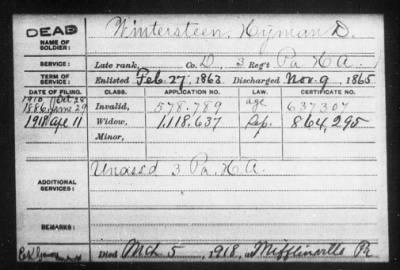 DEAD Wintersteen, Hyman D.
NAME OF SOLDIER:
SERVICE: Late rank, Co. D, 3 Reg't Pa H A.
TERM OF SERVICE: Enlisted Feb. 27, 1863 Discharged Nov. 9, 1865
DATE OF FILING. CLASS. APPLICATION NO. LAW. CERTIFICATE NO.
1910 Oct 28
1886, June 29 Invalid, 578.789 age 637307
1918 Apr 11 Widow, 1,118.637 Sep. 864,295
Minor,
ADDITIONAL SERVICES: Unassd 3 Pa. H A.
REMARKS:
Died Mch 5, 1918, at Mifflinville Pa